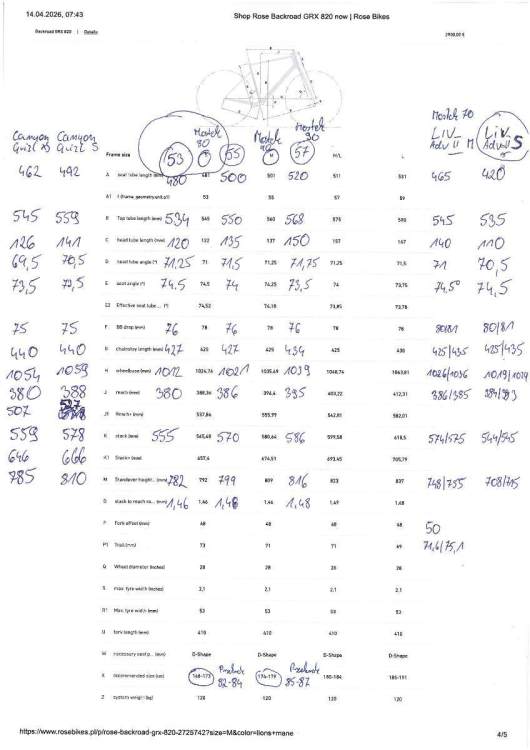 14.04.2026, 07:43 Shop Rose Backroad GRX 820 now | Rose Bikes
Backroad GRX 820 | Details
Mostek 70
Canyon Canyon Mostek 80 Mostek 90 LIV Liv
Grizl XS Grizl S 53 55 57 Adv II M Adv II S
Frame size M/L L
462 492 A seat tube length (mm) 480 481 500 501 520 511 531 465 420
A1 53 55 57 59
545 559 B Top tube length (mm) 534 545 550 560 568 575 590 545 535
126 141 C head tube length (mm) 120 122 135 137 150 157 167 140 110
69,5 70,5 D head tube angle (°) 71,25 71 71,5 71,25 71,75 71,25 71,5 71 70,5
73,5 73,5 E seat angle (°) 74,5 74,5 74 74,25 73,5 74 73,75 74,5° 74,5
E2 Effective seat tube... (°) 74,52 74,18 73,95 73,78
75 75 F BB drop (mm) 76 78 76 78 76 78 78 80/81 80/81
440 440 G chainstay length (mm) 427 425 427 425 434 425 430 425/435 425/435
1054 1059 H wheelbase (mm) 1012 1024,74 1021 1035,69 1039 1048,74 1063,81 1026/1036 1019/1029
380 388 J reach (mm) 380 388,36 386 394,4 395 403,22 412,31 386/385
507 527 J1 Reach+ (mm) 537,84 555,99 582,01
559 578 K stack (mm) 555 565,68 570 580,64 586 599,58 618,5 574/575 544/545
646 666 K1 Stack+ (mm) 657,4 674,51 693,45 705,79
785 810 M Standover height... (mm) 782 792 799 809 816 823 837 748/755 708/715
O stack to reach ra... (mm) 1,46 1,46 1,48 1,46 1,48 1,49 1,48
P Fork offset (mm) 48 48 48 48 50
P1 Trail (mm) 73 71 71 69 71,6/75,1
Q Wheel diameter (inches) 28 28 28 28
R max. tyre width (inches) 2,1 2,1 2,1 2,1
R1 Max. tyre width (mm) 53 53 53 53
U fork length (mm) 410 410 410 410
W necessary seat p... (mm) D-Shape D-Shape D-Shape D-Shape
X recommended size (cm) 168-173 82-84 174-179 85-87 180-184 185-191
Z system weight (kg) 120 120 120 120
https://www.rosebikes.pl/p/rose-backroad-grx-820-2725742?size=M&color=lions+mane 4/5